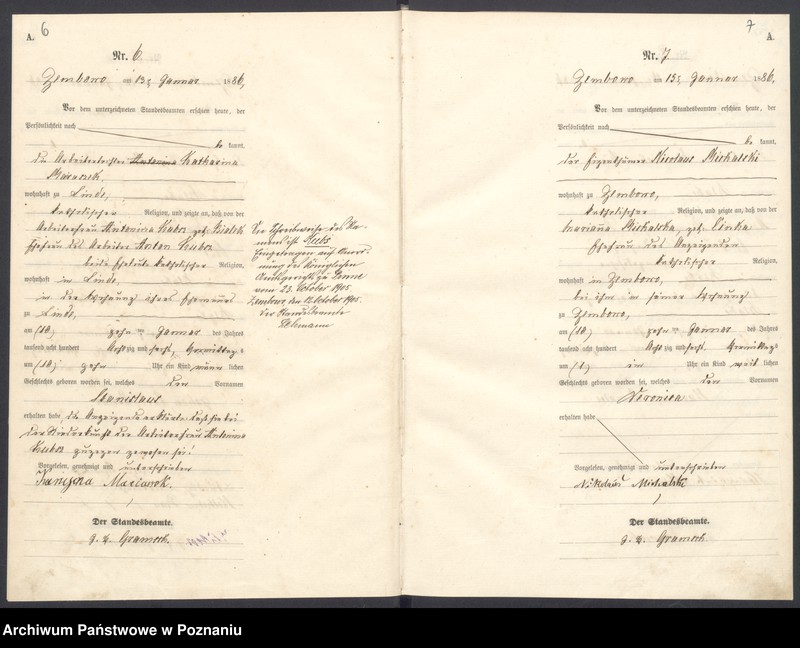 6
A.
Nr. 6.
Zembowo am 13ten Januar 1886,
Vor dem unterzeichneten Standesbeamten erschien heute, der
Persönlichkeit nach
be kannt,
die Katharina
wohnhaft zu Linde,
katholischer Religion, und zeigte an, daß von der
Arbeiterfrau Antonina geb.
Ehefrau des Arbeiter Anton
beide katholischer Religion,
wohnhaft in Linde,
in der Wohnung ihres Ehemannes
zu Linde,
am (10) zehn ten Januar des Jahres
tausend acht hundert Acht zig und sechs, Vormittags
um (10) zehn Uhr ein Kind männ lichen
Geschlechts geboren worden sei, welches den Vornamen
Stanislaus
erhalten habe, die Anzeigende erklärte daß sie bei
der Niederkunft der Arbeiterfrau Antonina
zugegen gewesen sei!
Vorgelesen, genehmigt und unterschrieben
Maciarek.
Der Standesbeamte.
Die Schreibweise des Na-
mens ist
Eingetragen auf Anord-
nung des Königlichen
Amtsgerichts zu
vom 23. October 1905.
Zembowo, den October 1905.
Der Standesbeamte
7
A.
Nr. 7.
Zembowo, am 15ten Januar 1886,
Vor dem unterzeichneten Standesbeamten erschien heute, der
Persönlichkeit nach
be kannt,
der Eigenthümer Nicolaus Michalski
wohnhaft zu Zembowo,
katholischer Religion, und zeigte an, daß von der
Marianna Michalska, geb.
Ehefrau des Anzeigenden
katholischer Religion,
wohnhaft in Zembowo,
bei ihm in seiner Wohnung
zu Zembowo,
am (10) zehn ten Januar des Jahres
tausend acht hundert Acht zig und sechs, Vormittags
um (1) ein Uhr ein Kind weib lichen
Geschlechts geboren worden sei, welches den Vornamen
Veronica
erhalten habe
Vorgelesen, genehmigt und unterschrieben
Michalski
Der Standesbeamte.
Archiwum Państwowe w Poznaniu